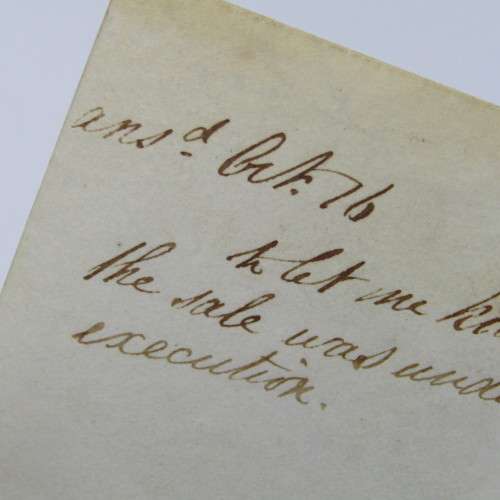 ansd Oct. 16
to let me kno
the sale was unde
execution.